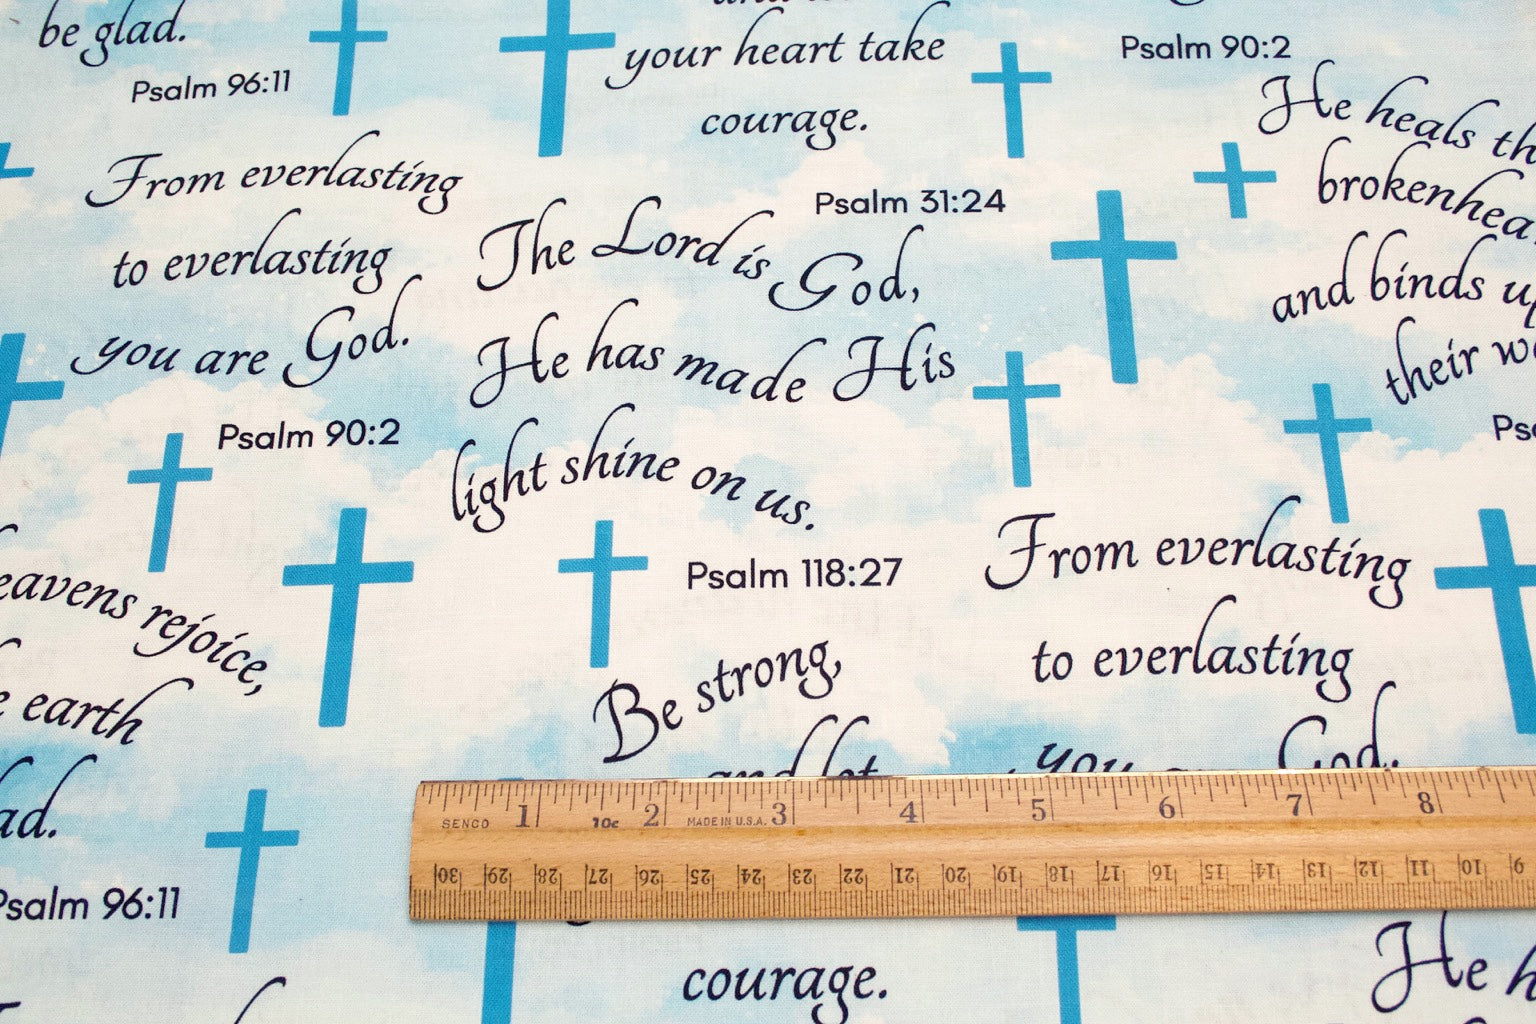 be glad.
Psalm 96:11
your heart take
courage.
Psalm 31:24
Psalm 90:2
He heals
and binds
their
From everlasting
to everlasting
you are God.
Psalm 90:2
The Lord is God,
He has made His
light shine on us.
Psalm 118:27
rejoice,
earth
Psalm 96:11
Be strong,
and let
From everlasting
to everlasting
you
God.
1 2 3 4 5 6 7 8
SENCO 10c MADE IN U.S.A.
30 29 28 27 26 25 24 23 22 21 20 19 18 17 16 15 14 13 12 11 10 9
courage.
He